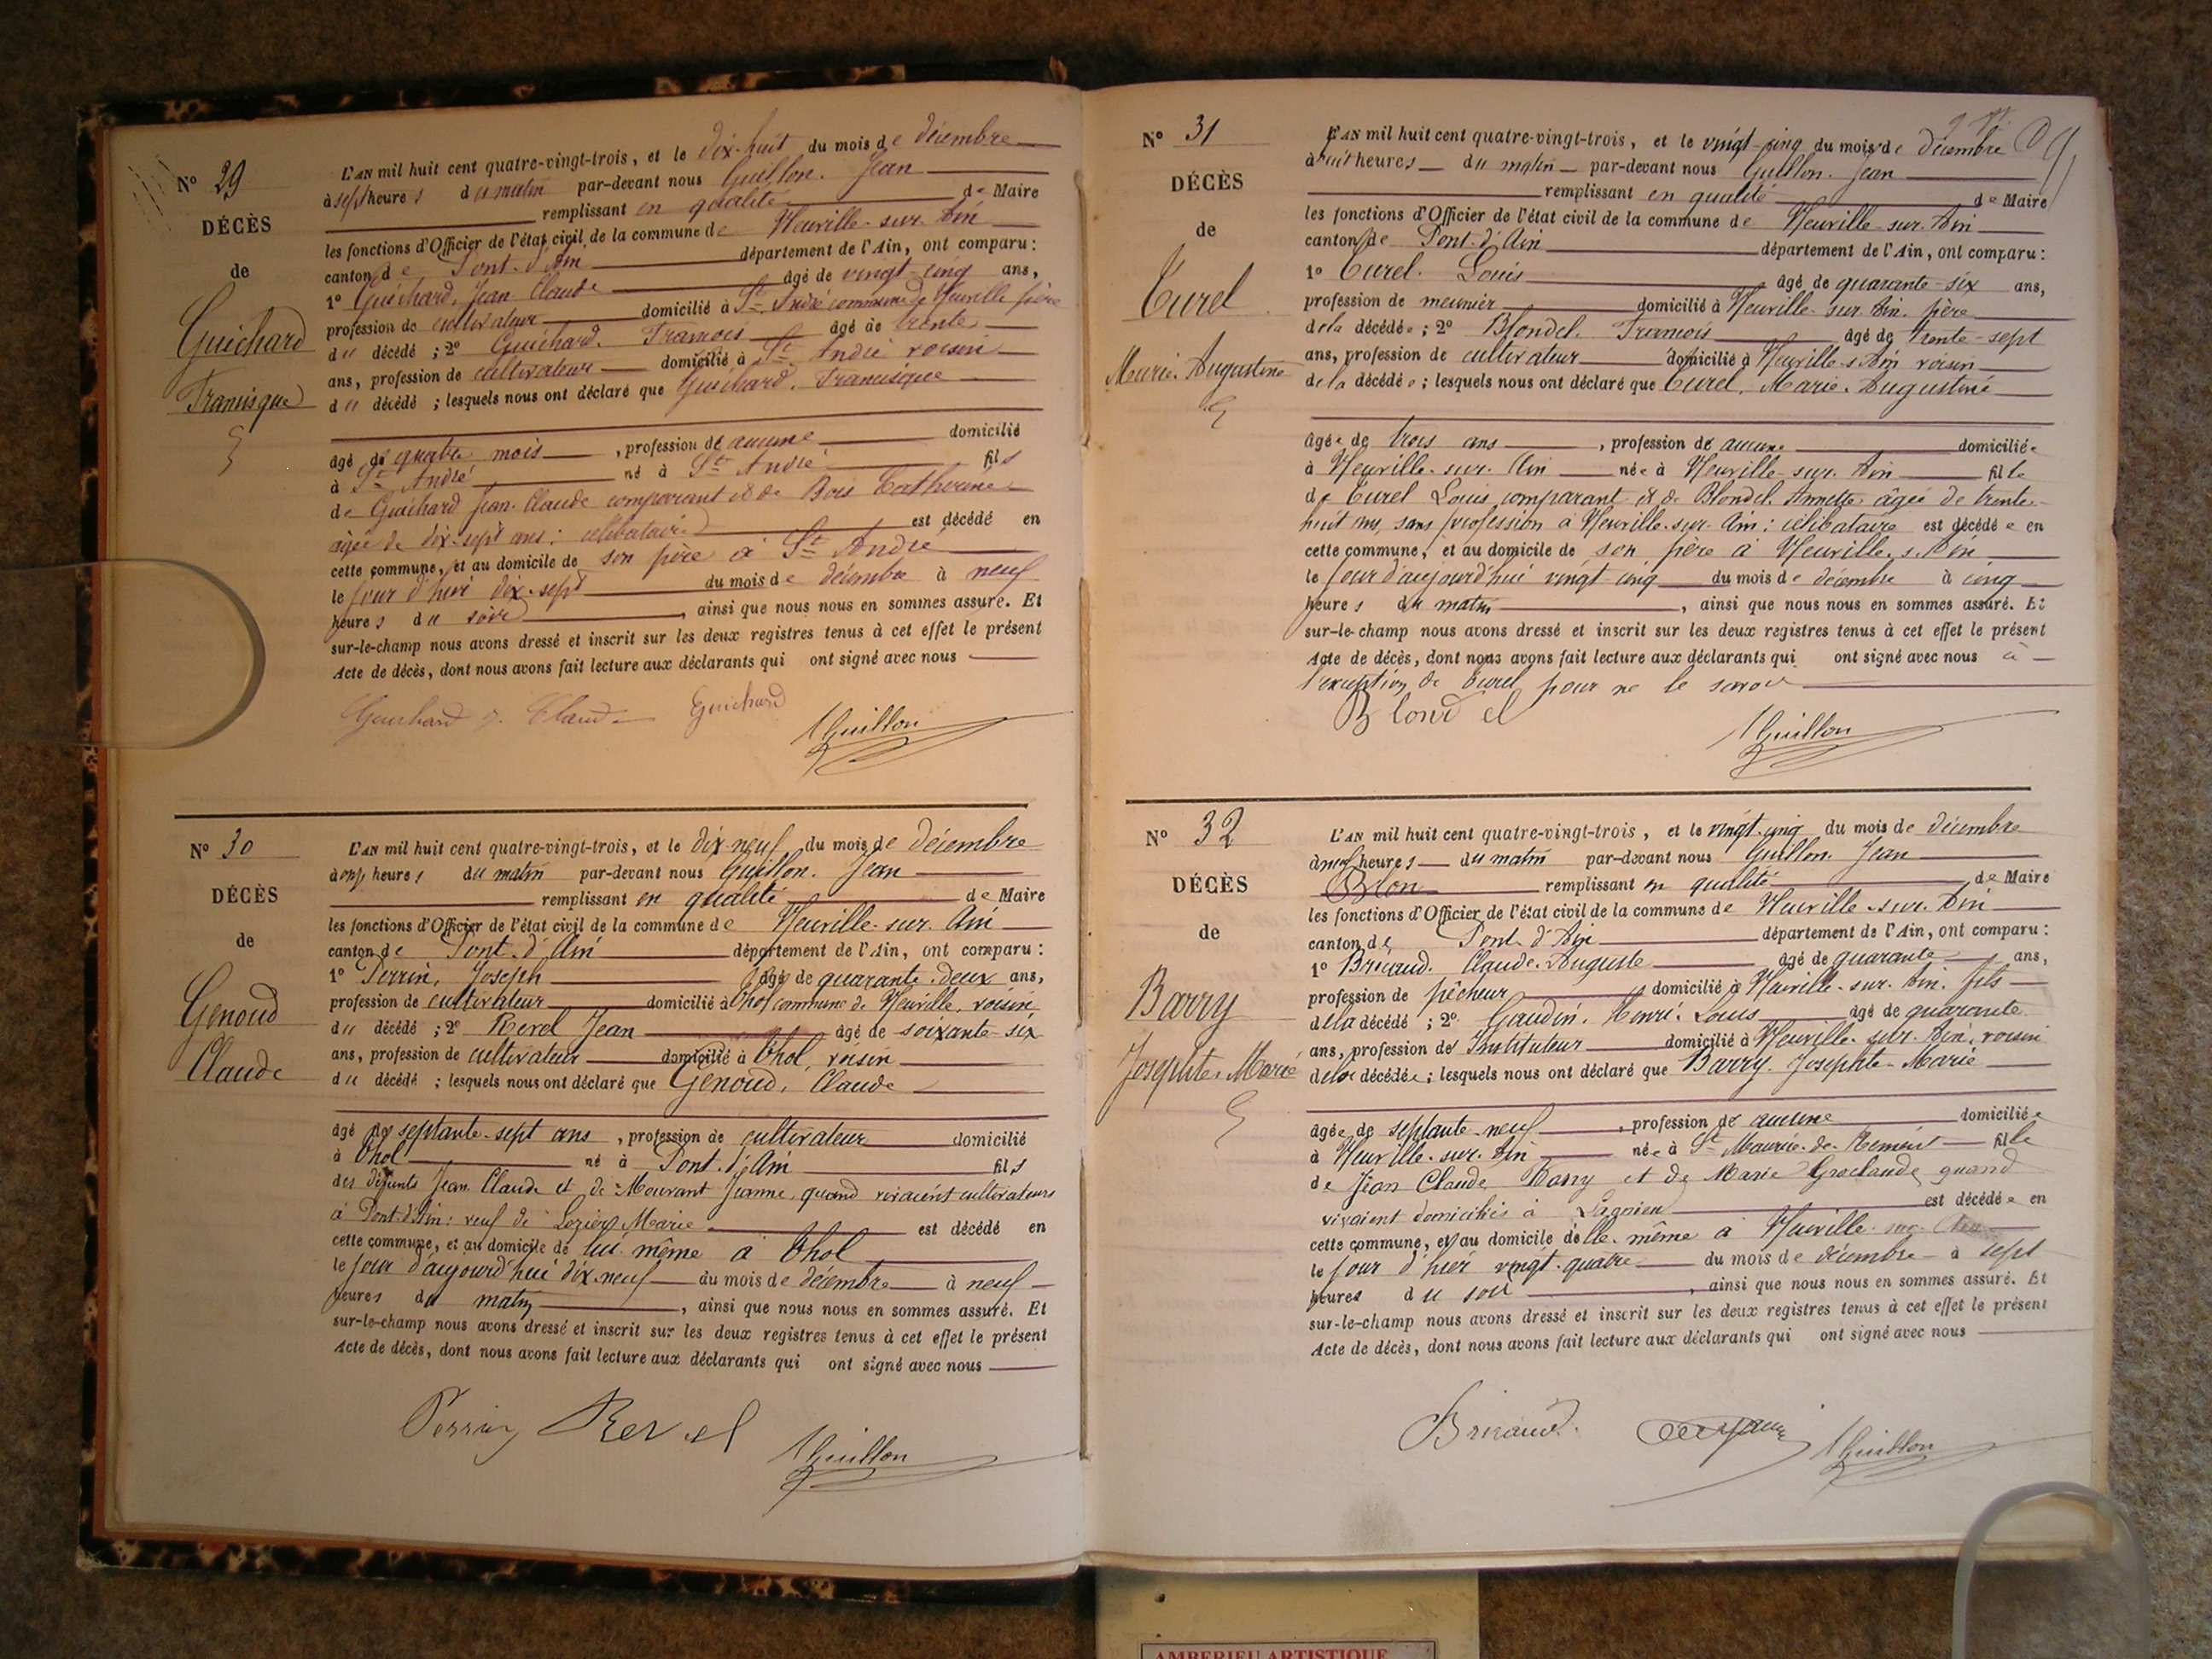 N° 29
DÉCÈS
de
Guichard
Francisque
L'AN mil huit cent quatre-vingt-trois, et le dix-huit du mois de décembre
à sept heures du matin par-devant nous Guillon. Jean
remplissant en qualité de Maire
les fonctions d'Officier de l'état civil de la commune de Neuville-sur-Ain
canton de Pont-d'Ain département de l'Ain, ont comparu :
1° Guichard, Jean Claude âgé de vingt-cinq ans,
profession de cultivateur domicilié à St André commune de Neuville père
du décédé ; 2° Guichard. François âgé de trente
ans, profession de cultivateur domicilié à St André voisin
du décédé ; lesquels nous ont déclaré que Guichard. Francisque
âgé de quatre mois , profession de aucune domicilié
à St André né à St André fils
de Guichard Jean-Claude comparant et de Bois Catherine
âgée de dix-sept ans : célibataire est décédé en
cette commune, et au domicile de son père à St André
le jour d'hier dix-sept du mois de décembre à neuf
heures du soir , ainsi que nous nous en sommes assuré. Et
sur-le-champ nous avons dressé et inscrit sur les deux registres tenus à cet effet le présent
Acte de décès, dont nous avons fait lecture aux déclarants qui ont signé avec nous
Guichard J. Claude Guichard
Guillon
N° 30
DÉCÈS
de
Genoud
Claude
L'AN mil huit cent quatre-vingt-trois, et le dix-neuf du mois de décembre
à onze heures du matin par-devant nous Guillon. Jean
remplissant en qualité de Maire
les fonctions d'Officier de l'état civil de la commune de Neuville-sur-Ain
canton de Pont-d'Ain département de l'Ain, ont comparu :
1° Perrin, Joseph âgé de quarante-deux ans,
profession de cultivateur domicilié à Thol commune de Neuville, voisin
du décédé ; 2° Revel Jean âgé de soixante-six
ans, profession de cultivateur domicilié à Thol, voisin
du décédé ; lesquels nous ont déclaré que Genoud, Claude
âgé de septante-sept ans , profession de cultivateur domicilié
à Thol né à Pont-d'Ain fils
des défunts Jean Claude et de Mouvant Jeanne, quand vivaient cultivateurs
à Pont-d'Ain : veuf de Marie est décédé en
cette commune, et au domicile de lui-même à Thol
le jour d'aujourd'hui dix-neuf du mois de décembre à neuf
heures du matin , ainsi que nous nous en sommes assuré. Et
sur-le-champ nous avons dressé et inscrit sur les deux registres tenus à cet effet le présent
Acte de décès, dont nous avons fait lecture aux déclarants qui ont signé avec nous
Perrin Revel
Guillon
N° 31
DÉCÈS
de
Curel
Marie-Augustine
L'AN mil huit cent quatre-vingt-trois, et le vingt-cinq du mois de décembre
à huit heures du matin par-devant nous Guillon. Jean
remplissant en qualité de Maire
les fonctions d'Officier de l'état civil de la commune de Neuville-sur-Ain
canton de Pont-d'Ain département de l'Ain, ont comparu :
1° Curel. Louis âgé de quarante-six ans,
profession de meunier domicilié à Neuville-sur-Ain. père
de la décédée ; 2° Blondel. François âgé de trente-sept
ans, profession de cultivateur domicilié à Neuville-s-Ain voisin
de la décédée ; lesquels nous ont déclaré que Curel, Marie-Augustine
âgée de trois ans , profession de aucune domiciliée
à Neuville-sur-Ain née à Neuville-sur-Ain fille
de Curel Louis comparant et de Blondel. Annette âgée de trente-
huit ans, sans profession à Neuville-sur-Ain : célibataire est décédée en
cette commune, et au domicile de son père à Neuville-s-Ain
le jour d'aujourd'hui vingt-cinq du mois de décembre à cinq
heures du matin , ainsi que nous nous en sommes assuré. Et
sur-le-champ nous avons dressé et inscrit sur les deux registres tenus à cet effet le présent
Acte de décès, dont nous avons fait lecture aux déclarants qui ont signé avec nous à
l'exception de Curel pour ne le savoir
Blondel
Guillon
N° 32
DÉCÈS
de
Barry
Josephte-Marie
L'AN mil huit cent quatre-vingt-trois, et le vingt-cinq du mois de décembre
à neuf heures du matin par-devant nous Guillon. Jean
remplissant en qualité de Maire
les fonctions d'Officier de l'état civil de la commune de Neuville-sur-Ain
canton de Pont-d'Ain département de l'Ain, ont comparu :
1° Bricaud. Claude-Auguste âgé de quarante ans,
profession de pêcheur domicilié à Neuville-sur-Ain. fils
de la décédé ; 2° Gaudin. Henri-Louis âgé de quarante
ans, profession de Instituteur domicilié à Neuville-sur-Ain, voisin
de la décédée ; lesquels nous ont déclaré que Barry. Josephte-Marie
âgée de septante-neuf , profession de aucune domiciliée
à Neuville-sur-Ain née à St Maurice-de-Remens fille
de Jean Claude Barry et de Marie quand
vivaient domiciliés à Lagnieu est décédée en
cette commune, et au domicile d'elle-même à Neuville-sur-Ain
le jour d'hier vingt-quatre du mois de décembre à sept
heures du soir , ainsi que nous nous en sommes assuré. Et
sur-le-champ nous avons dressé et inscrit sur les deux registres tenus à cet effet le présent
Acte de décès, dont nous avons fait lecture aux déclarants qui ont signé avec nous
Bricaud.
Guillon
AMBERIEU ARTISTIQUE